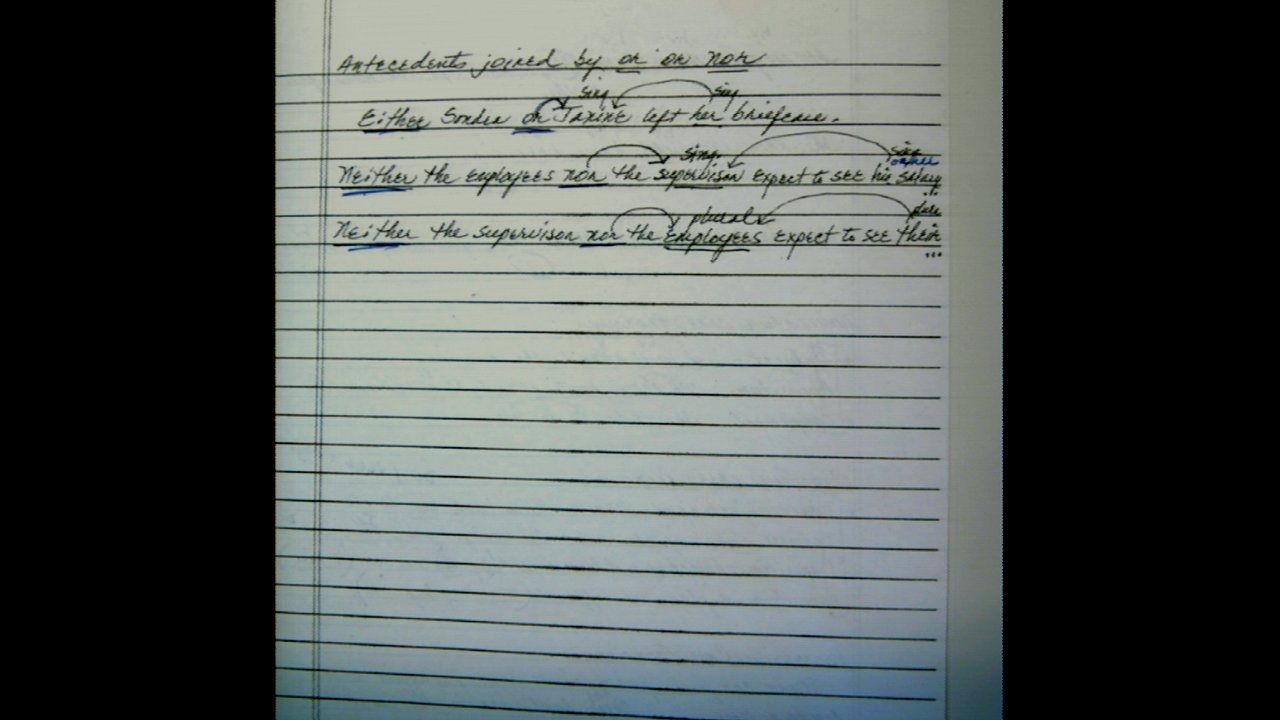 Antecedents joined by or or nor
sing. sing
Either Sondra or Janine left her briefcase.
sing. sing
or her
Neither the employees nor the supervisor expect to see his salary
plural plural
Neither the supervisor nor the employees expect to see their
...